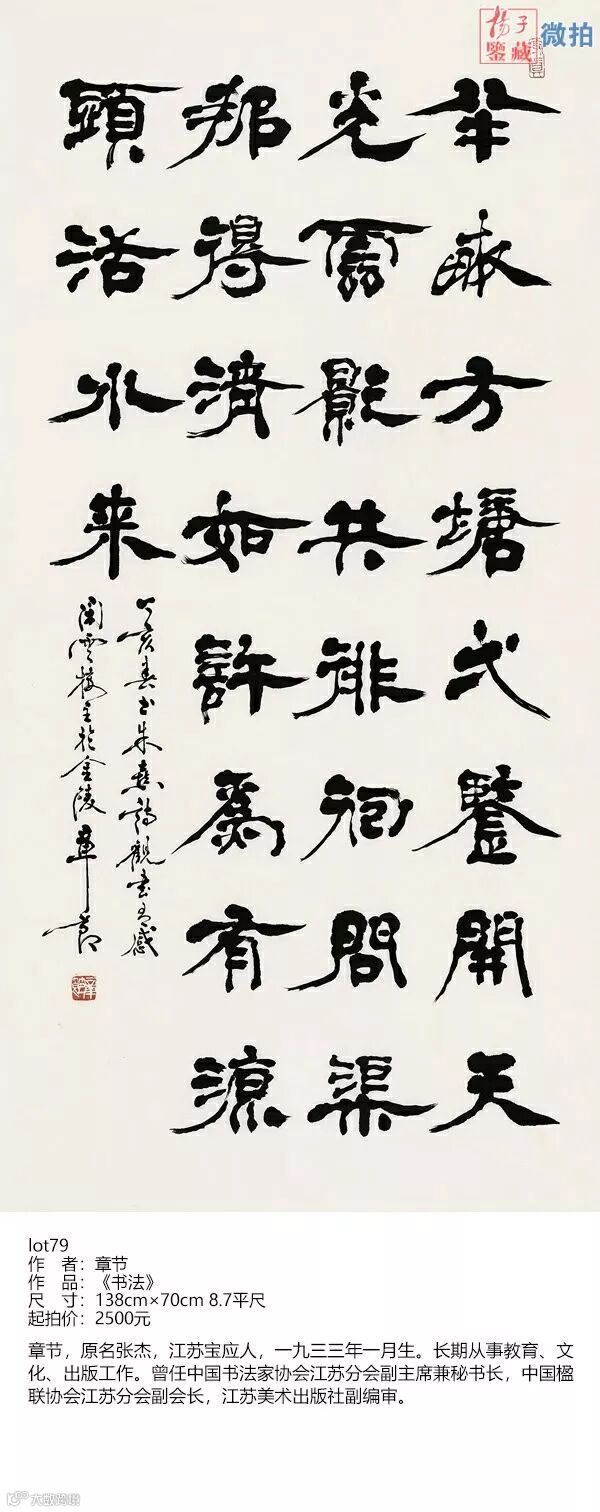 揚子
鑒藏
微拍
半畝方塘弌鑒開天
光雲影共徘徊問渠
那得清如許為有源
頭活水来
亥春书朱熹詩觀書有感
閑雲樓主於金陵章节
lot79
作 者：章节
作 品：《书法》
尺 寸：138cm×70cm 8.7平尺
起拍价：2500元
章节，原名张杰，江苏宝应人，一九三三年一月生。长期从事教育、文
化、出版工作。曾任中国书法家协会江苏分会副主席兼秘书长，中国楹
联协会江苏分会副会长，江苏美术出版社副编审。
大数跨境